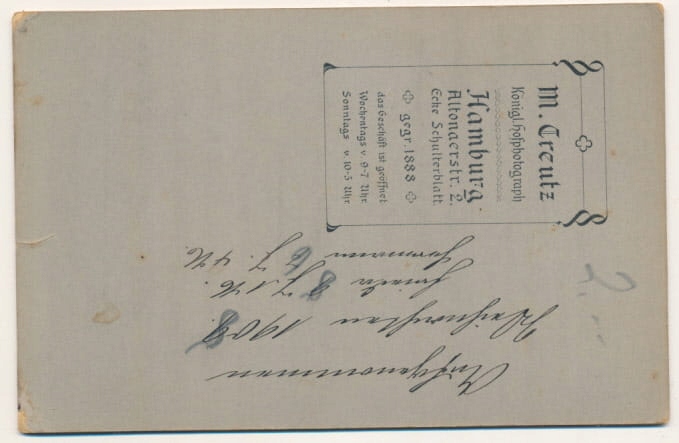 M. Creutz
Königl. Hofphotograph
Hamburg.
Altonaerstr. 2.
Ecke Schulterblatt.
gegr. 1888
das Geschäft ist geöffnet
Wochentags v. 9-7 Uhr.
Sonntags v. 10-5 Uhr.
Aufgenommen
Weihnachten 1908.
Frieda 8 J. 1 M.
Hermann 6 J. 4 M.